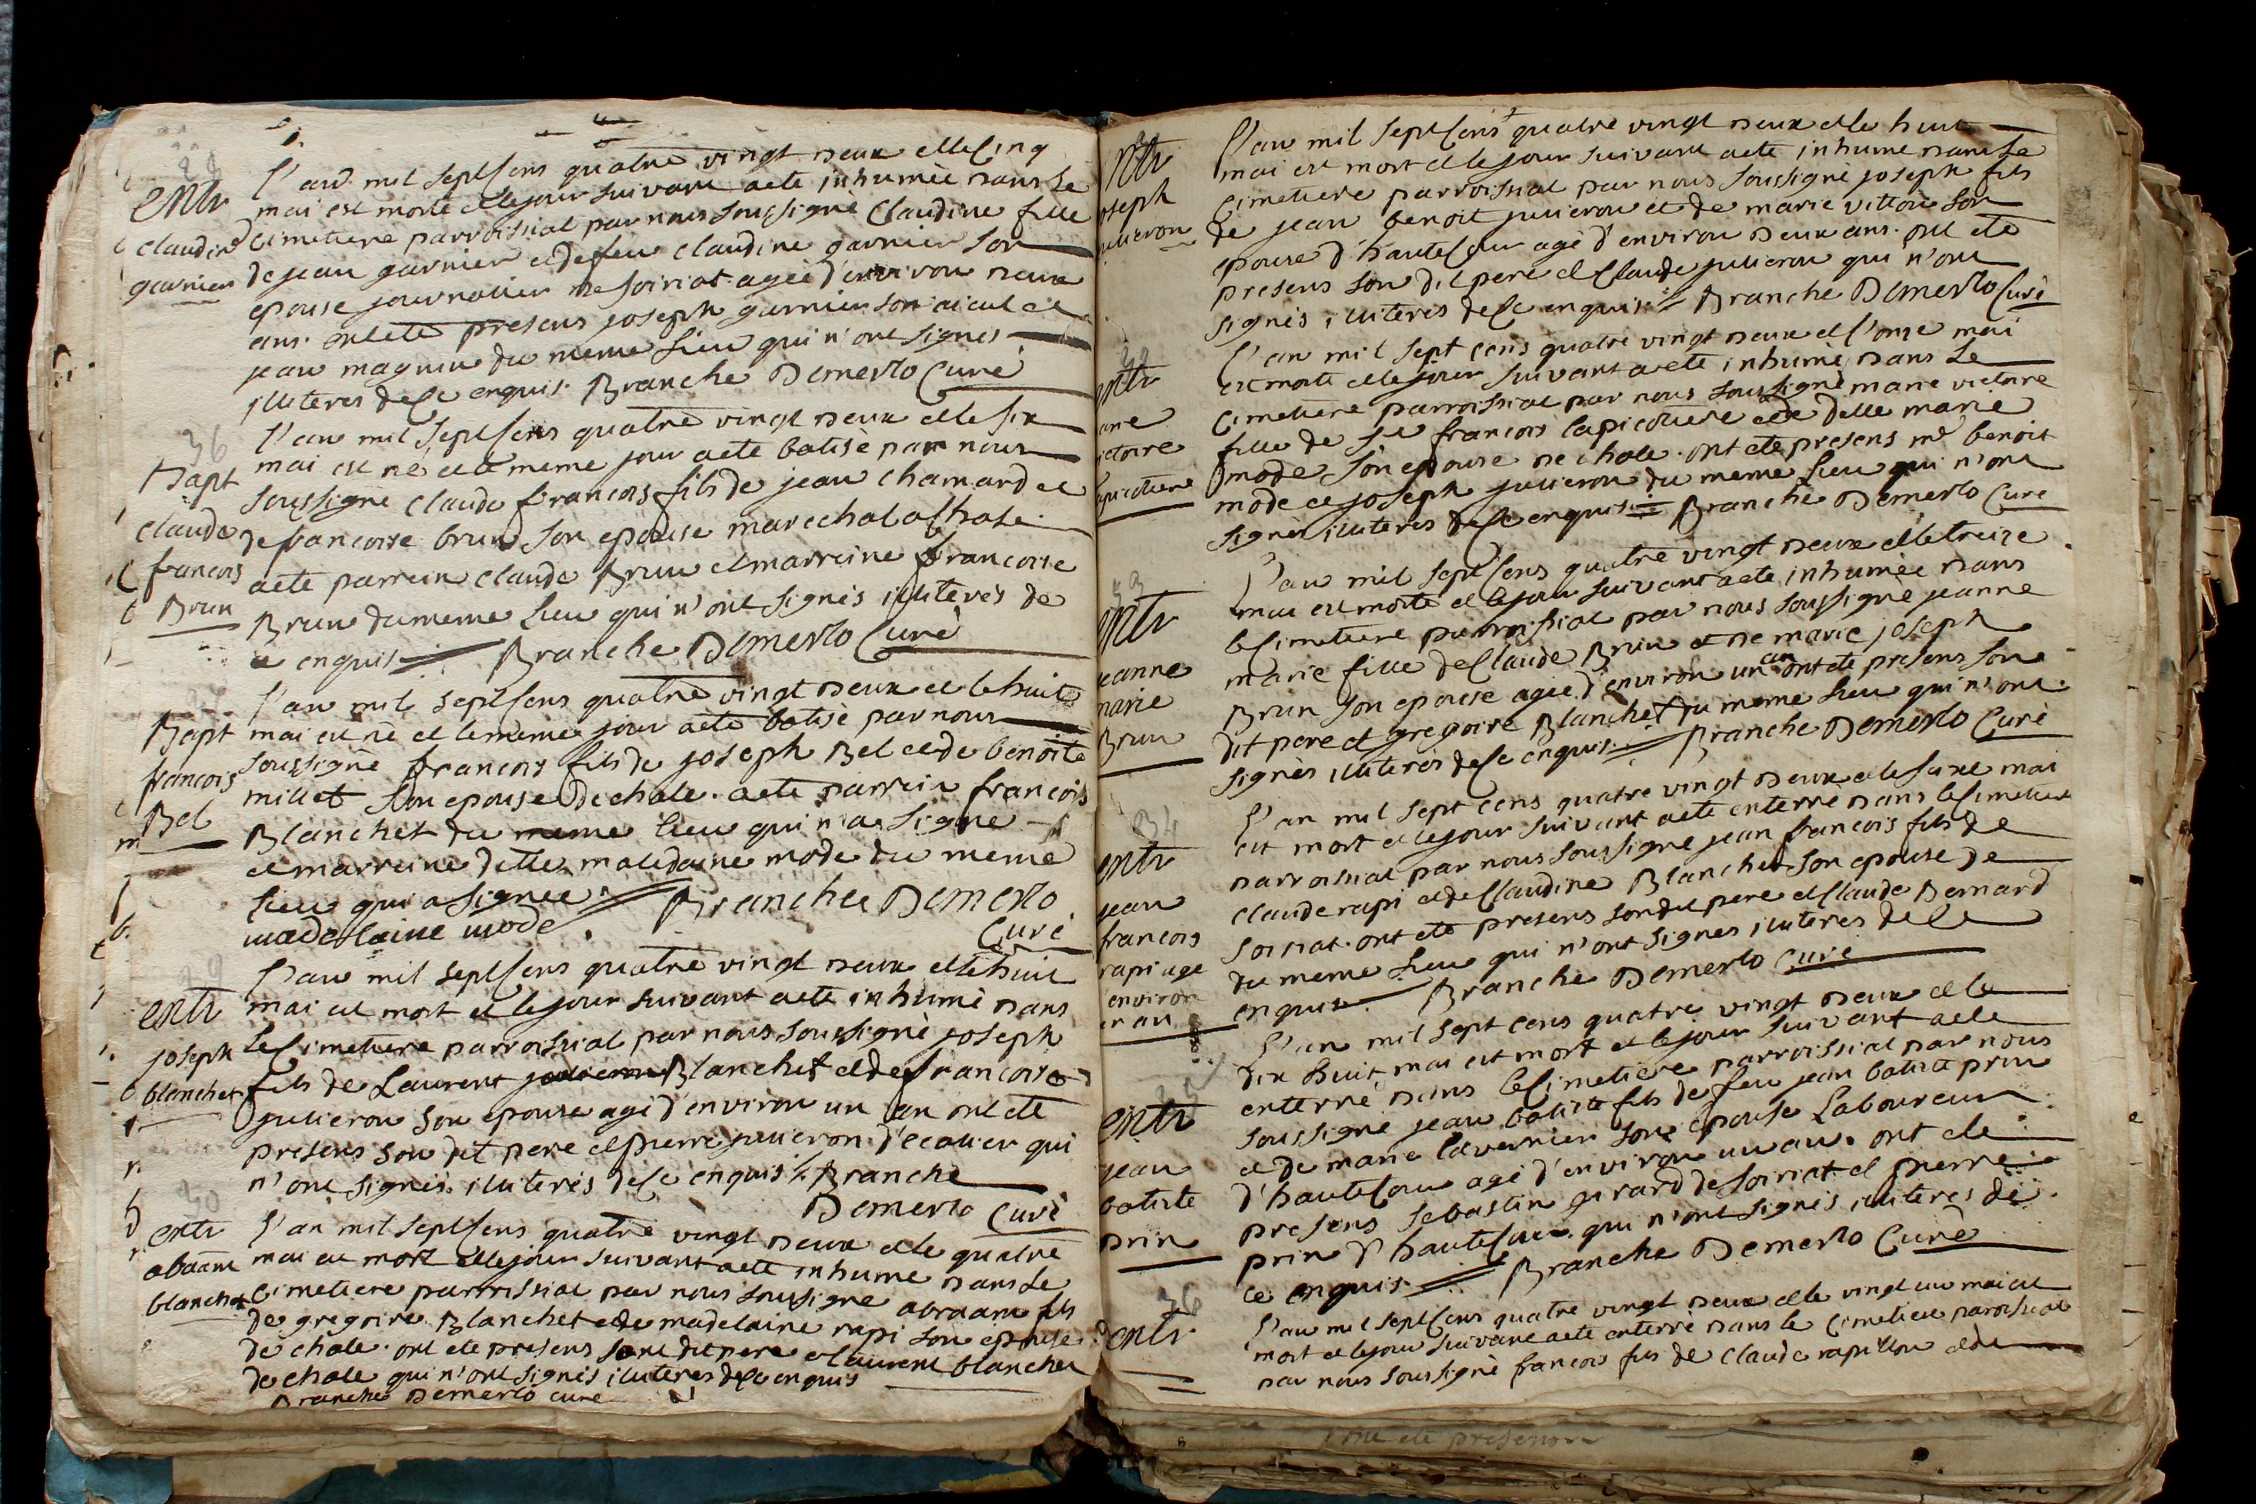 entr
claudine
garnier
L'an mil sept cens quatre vingt deux et le cinq
mai est morte et le jour suivant a eté inhumée dans le
cimetiere parroissial par nous soussigné claudine fille
de jean garnier et de feu claudine garnier son
epouse journalier de soiriat agée d'environ deux
ans. ont eté presens joseph garnier son aieul et
jean magnin du meme lieu qui n'ont signés
illiterés de ce enquis. Branche Demerlo Curé
36
Bapt
claude
francois
Brun
L'an mil sept cens quatre vingt deux et le six
mai est né et le meme jour a eté batisé par nous
soussigné claude francois fils de jean chamard et
de francoise brun son epouse marechal a chole.
a eté parrein claude Brun et marreine francoise
Brun du meme lieu qui n'ont signés illiterés de
ce enquis Branche Demerlo Curé
Bapt
francois
Bel
L'an mil sept cens quatre vingt deux et le huit
mai est né et le meme jour a eté batisé par nous
soussigné francois fils de joseph Bel et de benoite
millet son epouse de chole. a eté parrein francois
Blanchet du meme lieu qui n'a signé
et marreine delle madelaine mode du meme
lieu qui a signée. Branche Demerlo
madelaine mode. Curé
entr
joseph
blanchet
L'an mil sept cens quatre vingt deux et le huit
mai est mort et le jour suivant a eté inhumé dans
le cimetiere parroissial par nous soussigné joseph
fils de Laurent Blanchet et de francoise
julieron son epouse agé d'environ un an ont eté
presens son dit pere et pierre julieron d'ecolier qui
n'ont signés illiterés de ce enquis Branche
Demerlo Curé
30
entr
abraam
blanchet
L'an mil sept cens quatre vingt deux et le quatre
mai est mort et le jour suivant a eté inhumé dans le
cimetiere parroissial par nous soussigné abraam fils
de gregoire Blanchet et de madelaine rapi son epouse
de chole. ont eté presens son dit pere et laurent blanchet
de chole qui n'ont signés illiterés de ce enquis
Branche Demerlo curé
entr
joseph
julieron
L'an mil sept cens quatre vingt deux et le huit
mai est mort et le jour suivant a eté inhumé dans le
cimetiere parroissial par nous soussigné joseph fils
de jean benoit julieron et de marie vitton son
epouse d'hautecour agé d'environ deux ans. ont eté
presens son dit pere et Claude julieron qui n'ont
signés illiterés de ce enquis Branche Demerlo Curé
entr
victoire
lapicotiere
L'an mil sept cens quatre vingt deux et l'onze mai
est morte et le jour suivant a eté inhumée dans le
cimetiere parroissial par nous soussigné marie victoire
fille de sr francois lapicotiere et de delle marie
mode son epouse de chole. ont eté presens mr benoit
mode et joseph julieron du meme lieu qui n'ont
signés illiterés de ce enquis Branche Demerlo Curé
33
entr
jeanne
marie
Brun
L'an mil sept cens quatre vingt deux et le treize
mai est morte et le jour suivant a eté inhumée dans
le cimetiere parroissial par nous soussigné jeanne
marie fille de Claude Brun et de marie joseph
Brun son epouse agée d'environ un an ont eté presens son
dit pere et gregoire Blanchet du meme lieu qui n'ont
signés illiterés de ce enquis Branche Demerlo Curé
34
entr
jean
francois
rapi age
environ
un an
L'an mil sept cens quatre vingt deux et le seize mai
est mort et le jour suivant a eté enterré dans le cimetiere
parroissial par nous soussigné jean francois fils de
claude rapi et de Claudine Blanchet son epouse de
soiriat. ont eté presens son dit pere et Claude Bernard
du meme lieu qui n'ont signés illiterés de ce
enquis. Branche Demerlo Curé
35
entr
jean
batiste
prin
L'an mil sept cens quatre vingt deux et le
dix huit mai est mort et le jour suivant a eté
enterré dans le cimetiere parroissial par nous
soussigné jean batiste fils de feu jean batiste prin
et de marie lavernier son epouse Laboureur
d'hautecour agé d'environ un an. ont eté
presens sebastin girard de soiriat et pierre
prin d'hautecour qui n'ont signés illiterés de
ce enquis. Branche Demerlo Curé
36
entr
L'an mil sept cens quatre vingt deux et le vingt un mai est
mort et le jour suivant a eté enterré dans le cimetiere paroissial
par nous soussigné francois fils de claude rapillon et de
ont eté presens